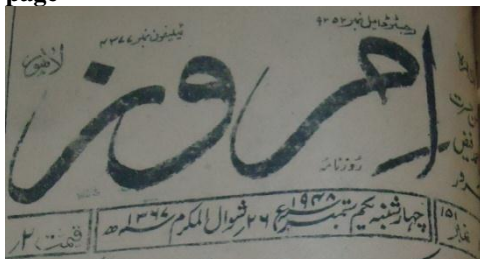 page
رجسٹرڈ ایل نمبر ۹۲۵۲
ٹیلیفون نمبر ۲۳۷۷
لاہور
امروز
روزنامہ
نمبر ۱۵۱
چہار شنبہ یکم ستمبر ۱۹۴۸ء ۲۶ شوال المکرم ۱۳۶۷ھ
قیمت ۲ر